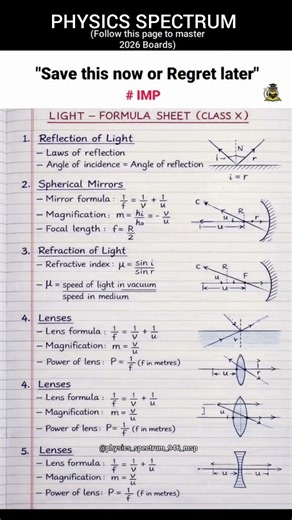 PHYSICS SPECTRUM
(Follow this page to master
2026 Boards)
"Save this now or Regret later"
# IMP
LIGHT – FORMULA SHEET (CLASS X)
1. Reflection of Light
– Laws of reflection
– Angle of incidence = Angle of reflection
N
i
r
i = r
2. Spherical Mirrors
– Mirror formula: 1/f = 1/v + 1/u
– Magnification: m = hi/ho = - v/u
– Focal length: f = R/2
C
R
u
r
u
3. Refraction of Light
– Refractive index: μ = sin i/sin r
– μ = speed of light in vacuum
speed in medium
C
R
u
F
u
4. Lenses
– Lens formula: 1/f = 1/v + 1/u
– Magnification: m = v/u
– Power of lens: P = 1/f (f in metres)
u
4. Lenses
– Lens formula: 1/f = 1/v + 1/u
– Magnification: m = v/u
– Power of lens: P = 1/f (f in metres)
u
@physics_spectrum_946_msp
5. Lenses
– Lens formula: 1/f = 1/v + 1/u
– Magnification: m = v/u
– Power of lens: P = 1/f (f in metres)
u